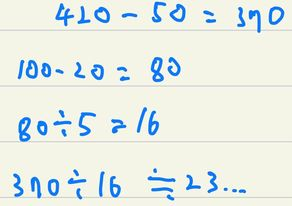 420 - 50 = 370
100 - 20 = 80
80 ÷ 5 = 16
370 ÷ 16 ≒ 23...